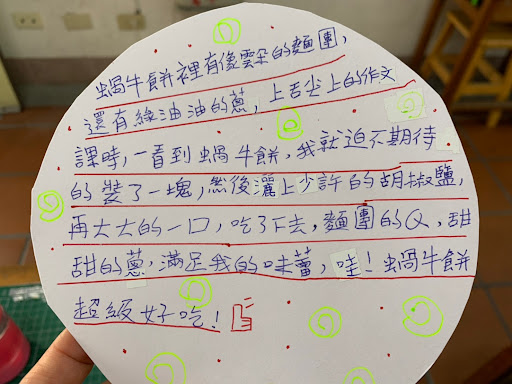 蝸牛餅裡有像雲朵的麵團,
還有綠油油的蔥,上舌尖上的作文
課時,一看到蝸牛餅,我就迫不期待
的裝了一塊,然後灑上少許的胡椒鹽,
再大大的一口,吃了下去,麵團的Q,甜
甜的蔥,滿足我的味蕾,哇!蝸牛餅
超級好吃!